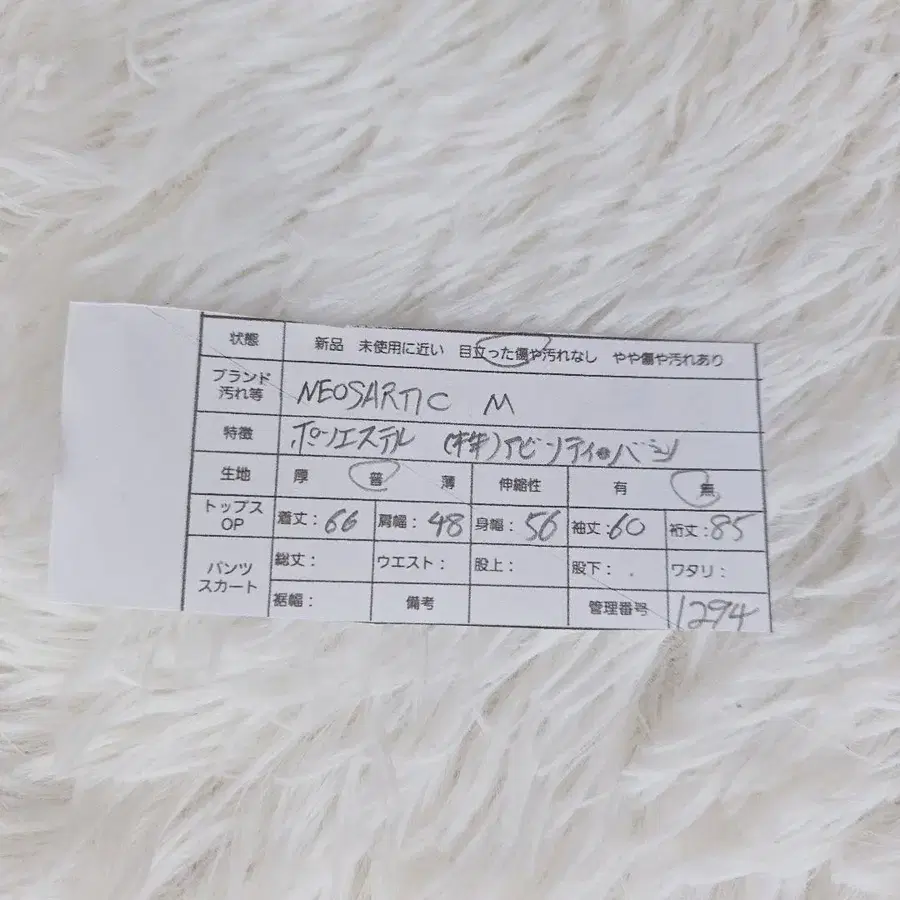 状態 新品 未使用に近い 目立った傷や汚れなし やや傷や汚れあり
ブランド
汚れ等 NEOSARTIC M
特徴 ポリエステル (株)アビリティ・バン
生地 厚 普 薄 伸縮性 有 無
トップス
OP 着丈:66 肩幅:48 身幅:56 袖丈:60 裄丈:85
パンツ
スカート 総丈: ウエスト: 股上: 股下: ワタリ:
裾幅: 備考 管理番号 1294